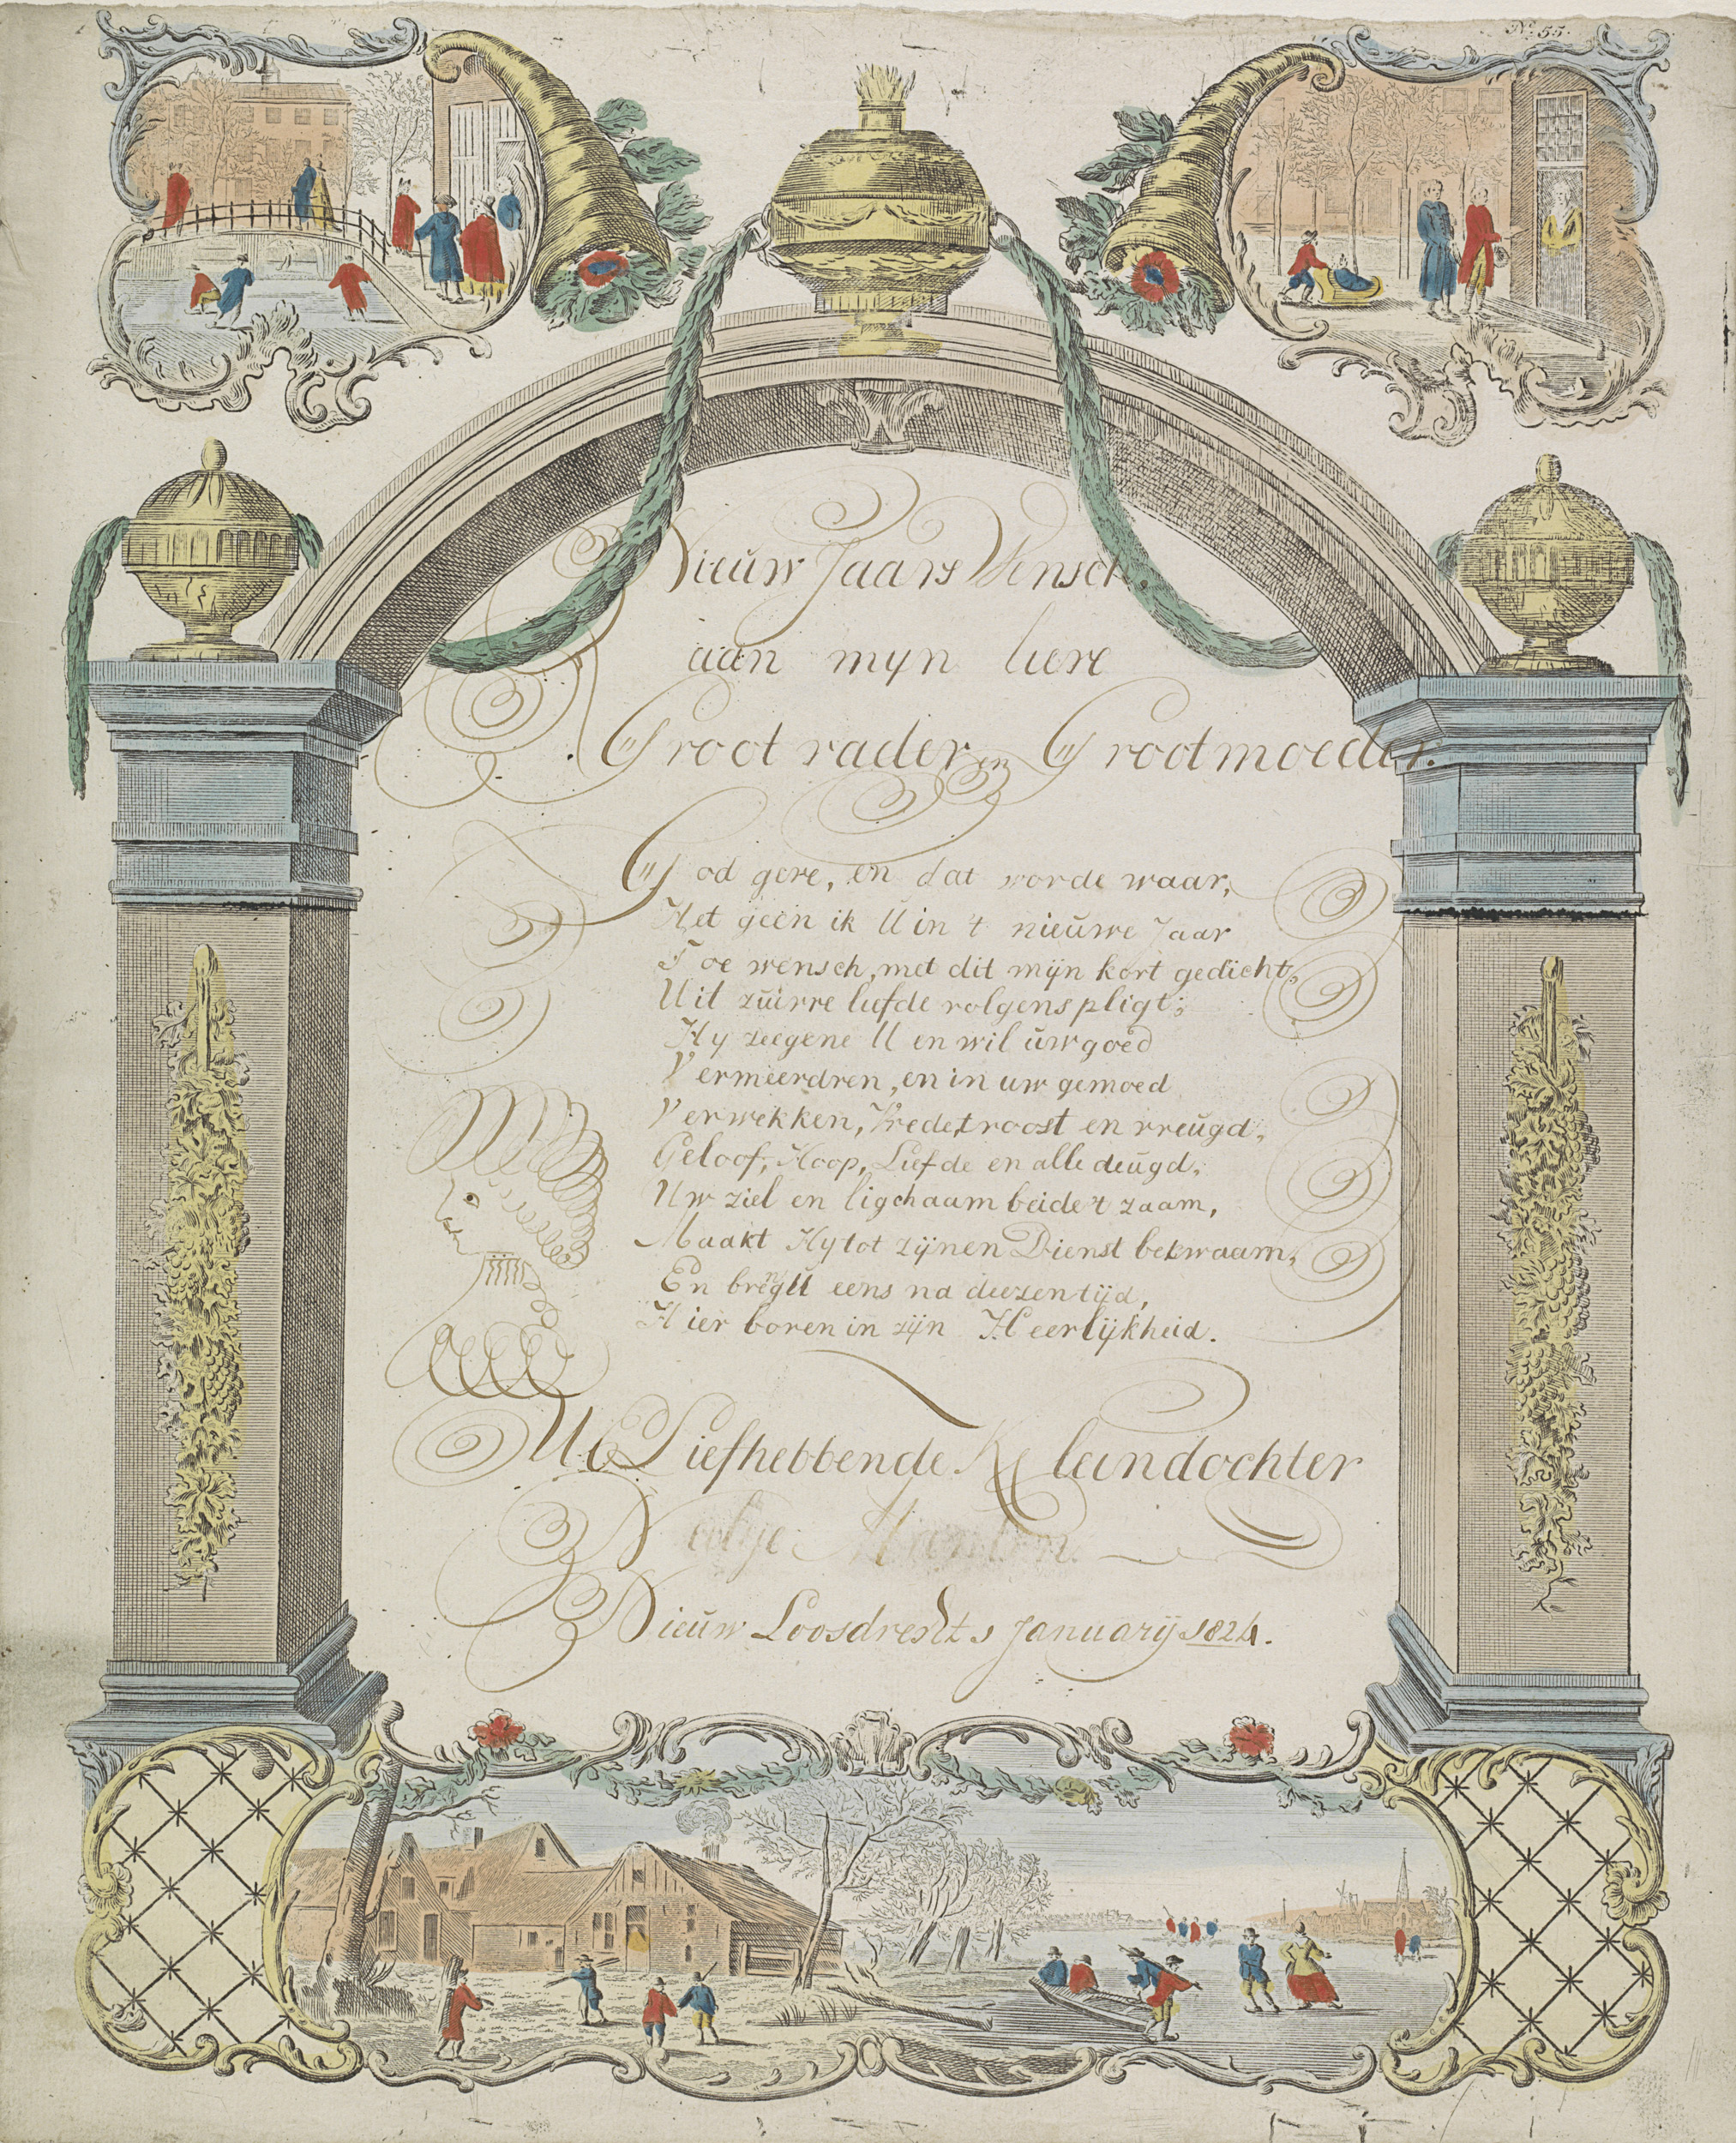 No. 55.
Nieuw Jaars Wensch.
aan myn lieve
Grootvader en Grootmoeder.
God geve, en dat worde waar,
Het geen ik U in 't nieuwe Jaar
Toe wensch, met dit mijn kort gedicht,
Uit zuivre liefde volgens pligt;
Hy zeegene U en wil uw goed
Vermeerdren, en in uw gemoed
Verwekken, Vrede, troost en vreugd,
Geloof, Hoop, Liefde en alle deugd,
Uw ziel en ligchaam beide 't zaam,
Maakt Hy tot zijnen Dienst bekwaam,
En breng U eens na deezen tijd,
Hier boven in zijn Heerlijkheid.
UE Liefhebbende Kleindochter
Neeltje
Nieuw Loosdrecht 1 January 1824.